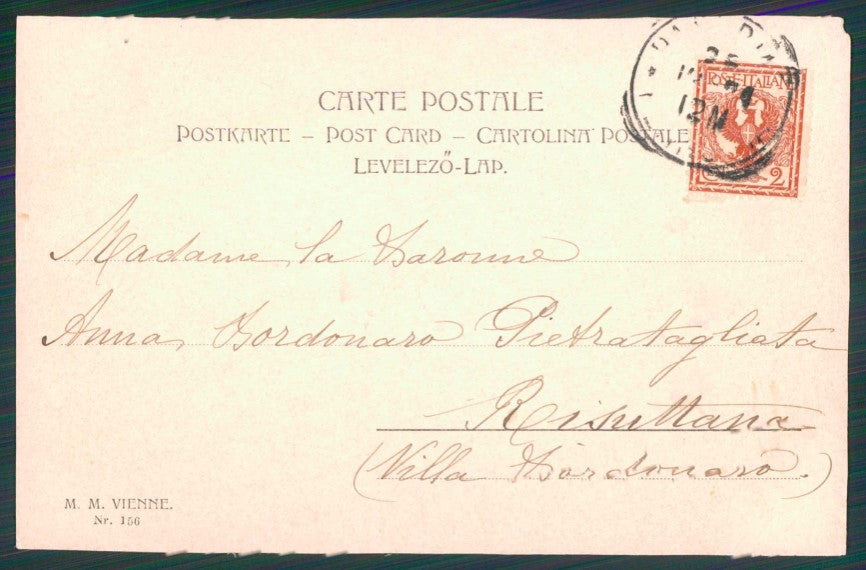 CARTE POSTALE
POSTKARTE – POST CARD – CARTOLINA POSTALE
LEVELEZŐ-LAP.
POSTE ITALIANE
2
12 M
Madame la Baronne
Anna Bordonaro Pietratagliata
Risuttana
(Villa Bordonaro.)
M. M. VIENNE.
Nr. 156